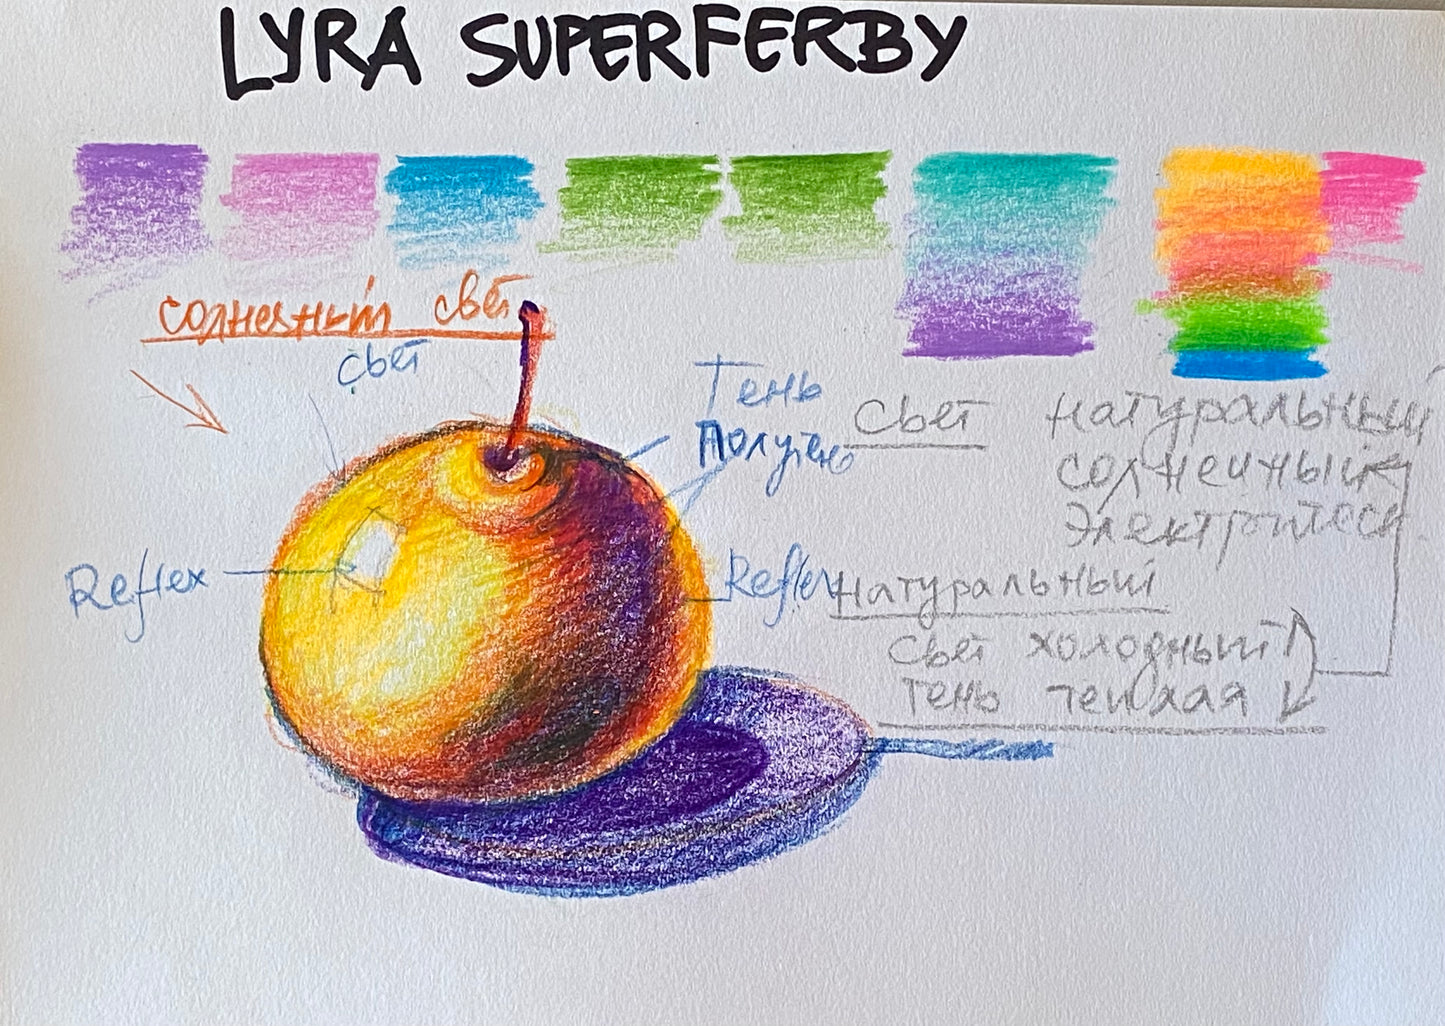 LYRA SUPERFERBY
солнечный свет
свет
Тень
Полутень
Свет натуральный
солнечный
Электрическ.
Reflex
Reflex
Натуральный
свет холодный
тень теплая